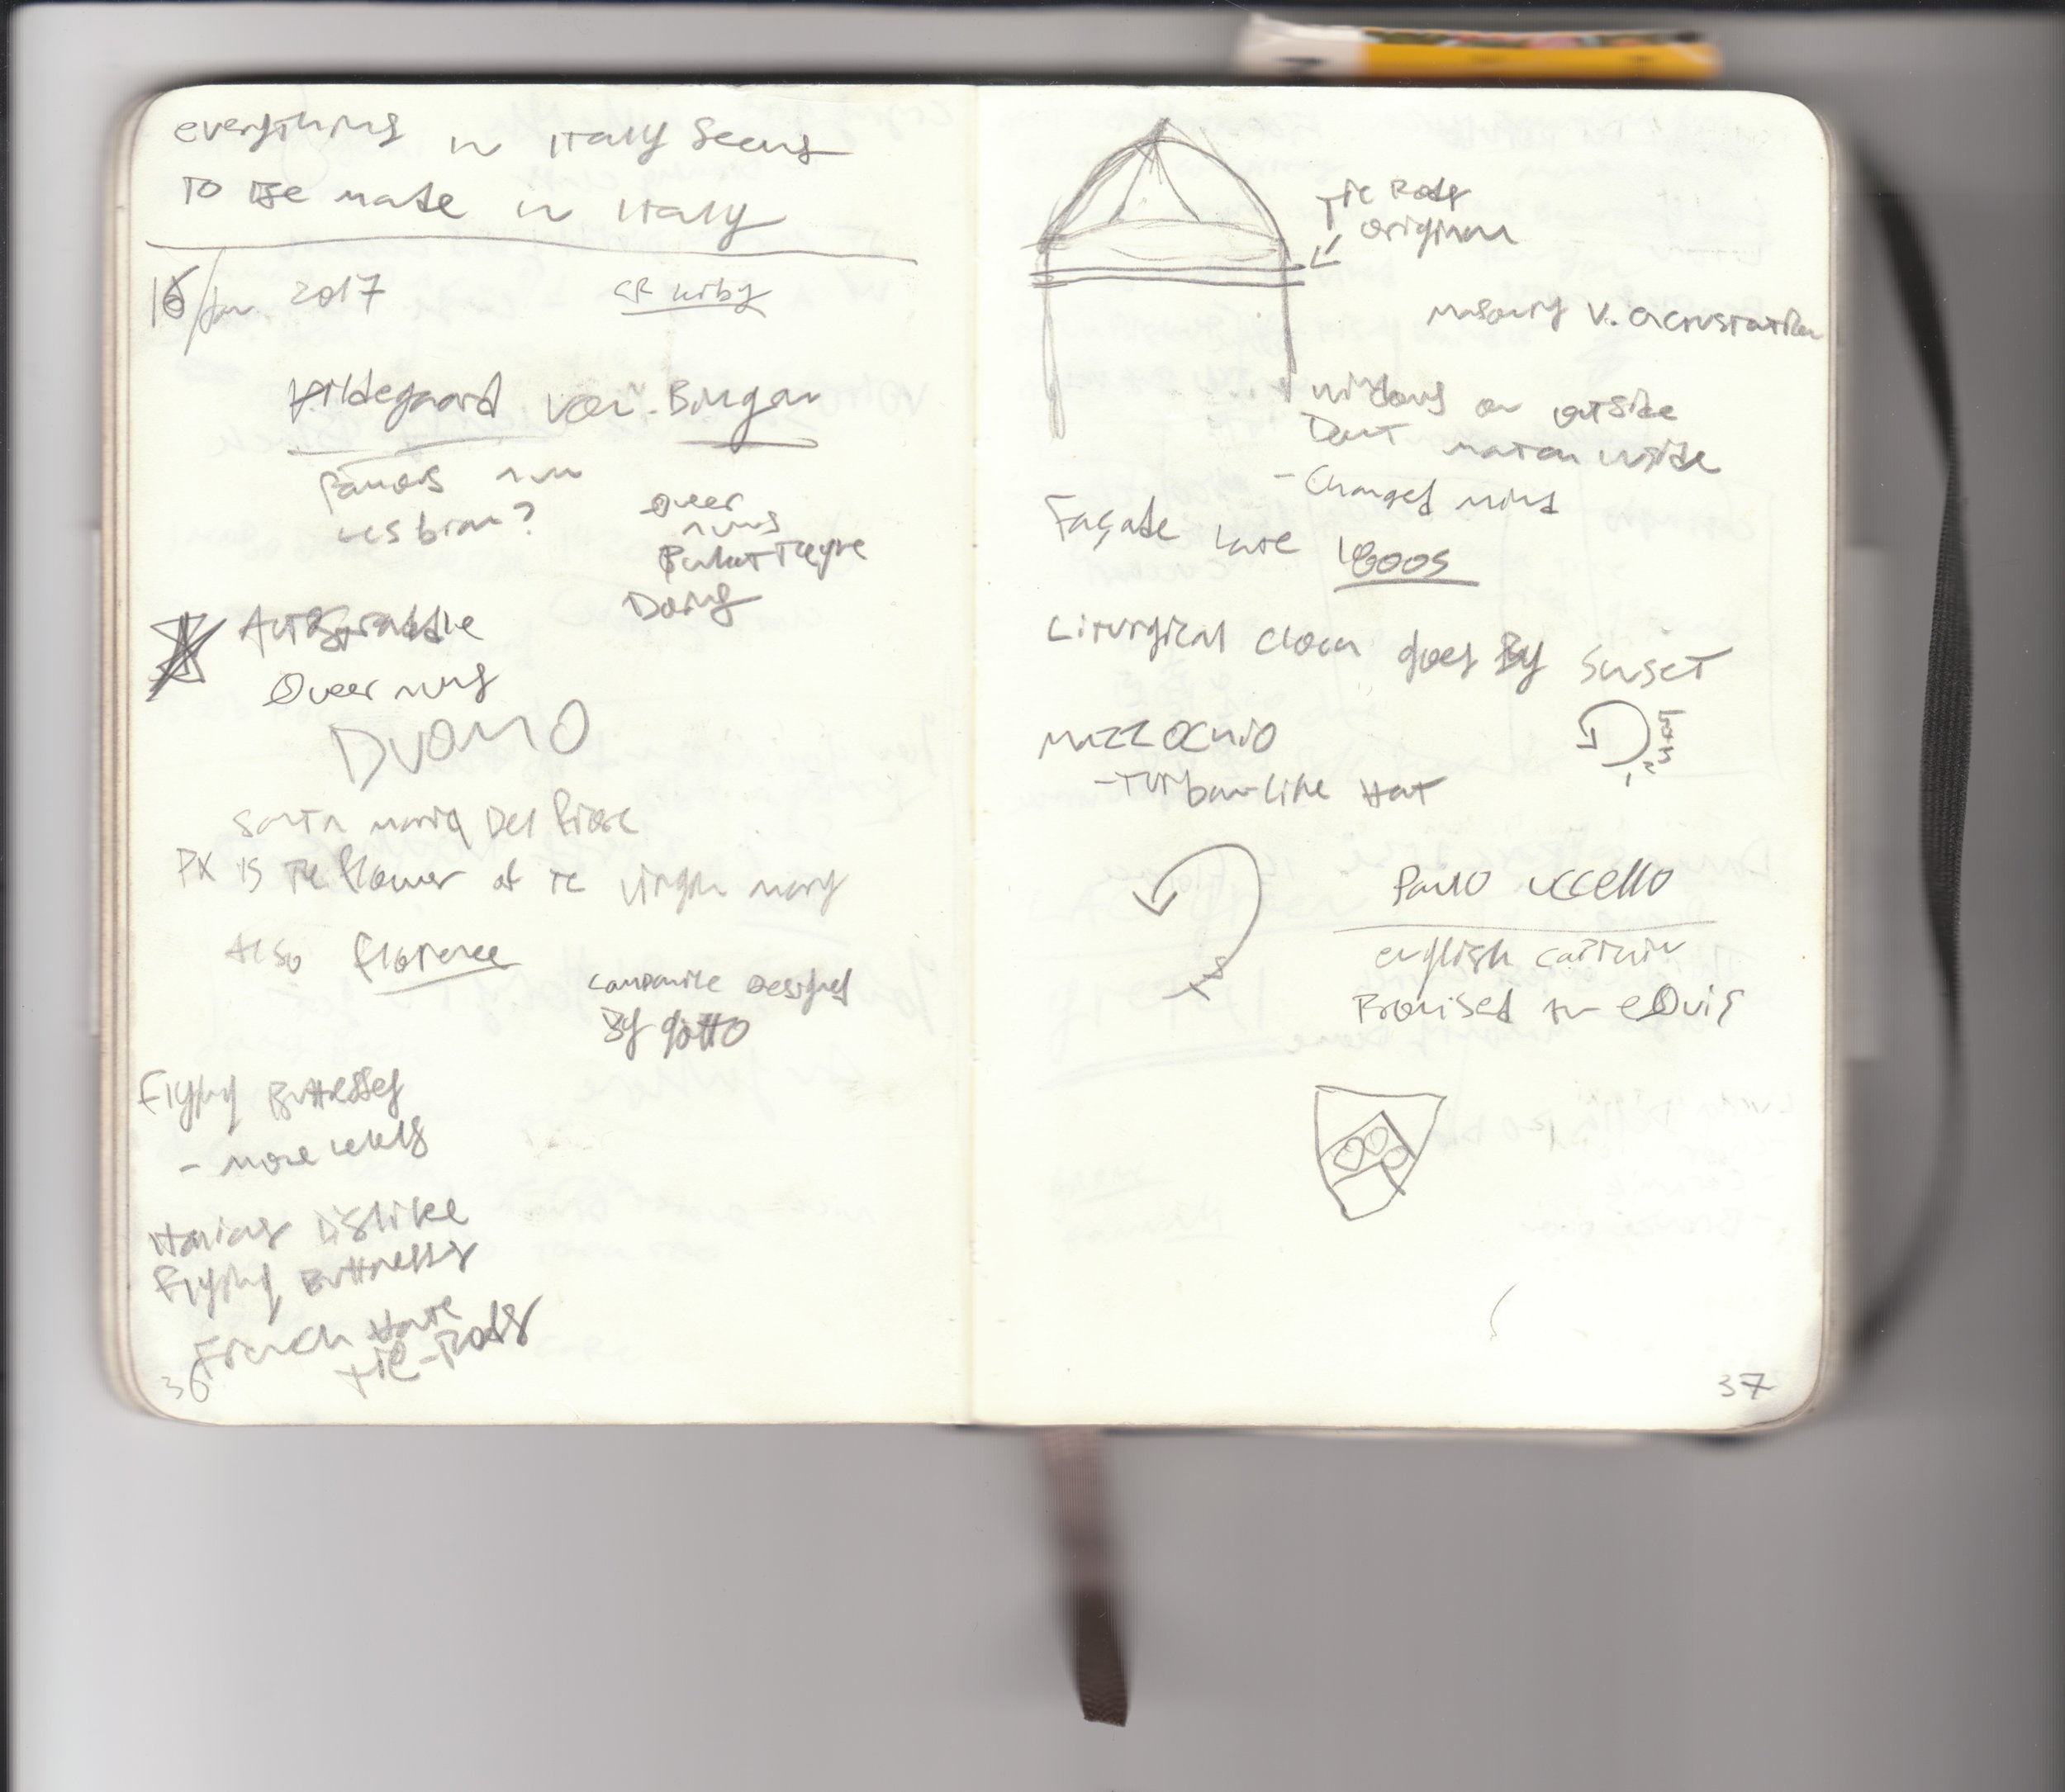 everything in Italy seems
to be made in Italy
16/Jan 2017
CR Kirby
Hildegaard von Bingan
famous nun
lesbian?
Queer
nuns
But they're
Doing
Queer nuns
DUOMO
Santa maria Del fiore
PX is the flower of the virgin mary
Also florence
campanile Designed
By giotto
Flying Buttresses
- more levels
Italians Dislike
Flying Buttresses
French Hate
tie-Rods
36
Tie Rods
original
masonry v. encrustation
windows on outside
Don't match inside
- Changed mind
Façade late 1800s
Liturgical clock goes By Sunset
mazzochio
- Turban-like Hat
1 2
Paulo uccello
english captain
Promised an eQuis
37